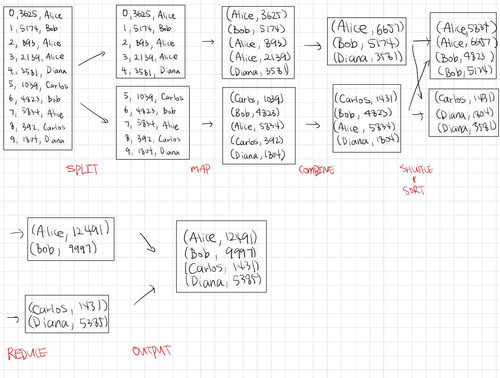 0, 3625, Alice
1, 5174, Bob
2, 893, Alice
3, 2139, Alice
4, 3581, Diana
5, 1039, Carlos
6, 4823, Bob
7, 5834, Alice
8, 392, Carlos
9, 1804, Diana
0, 3625, Alice
1, 5174, Bob
2, 893, Alice
3, 2139, Alice
4, 3581, Diana
5, 1039, Carlos
6, 4823, Bob
7, 5834, Alice
8, 392, Carlos
9, 1804, Diana
(Alice, 3625)
(Bob, 5174)
(Alice, 893)
(Alice, 2139)
(Diana, 3581)
(Carlos, 1039)
(Bob, 4823)
(Alice, 5834)
(Carlos, 392)
(Diana, 1804)
(Alice, 6657)
(Bob, 5174)
(Diana, 3581)
(Carlos, 1431)
(Bob, 4823)
(Alice, 5834)
(Diana, 1804)
(Alice, 5834)
(Alice, 6657)
(Bob, 4823)
(Bob, 5174)
(Carlos, 1431)
(Diana, 1804)
(Diana, 3581)
SPLIT
MAP
COMBINE
SHUFFLE
&
SORT
(Alice, 12491)
(Bob, 9997)
(Carlos, 1431)
(Diana, 5385)
(Alice, 12491)
(Bob, 9997)
(Carlos, 1431)
(Diana, 5385)
REDUCE
OUTPUT